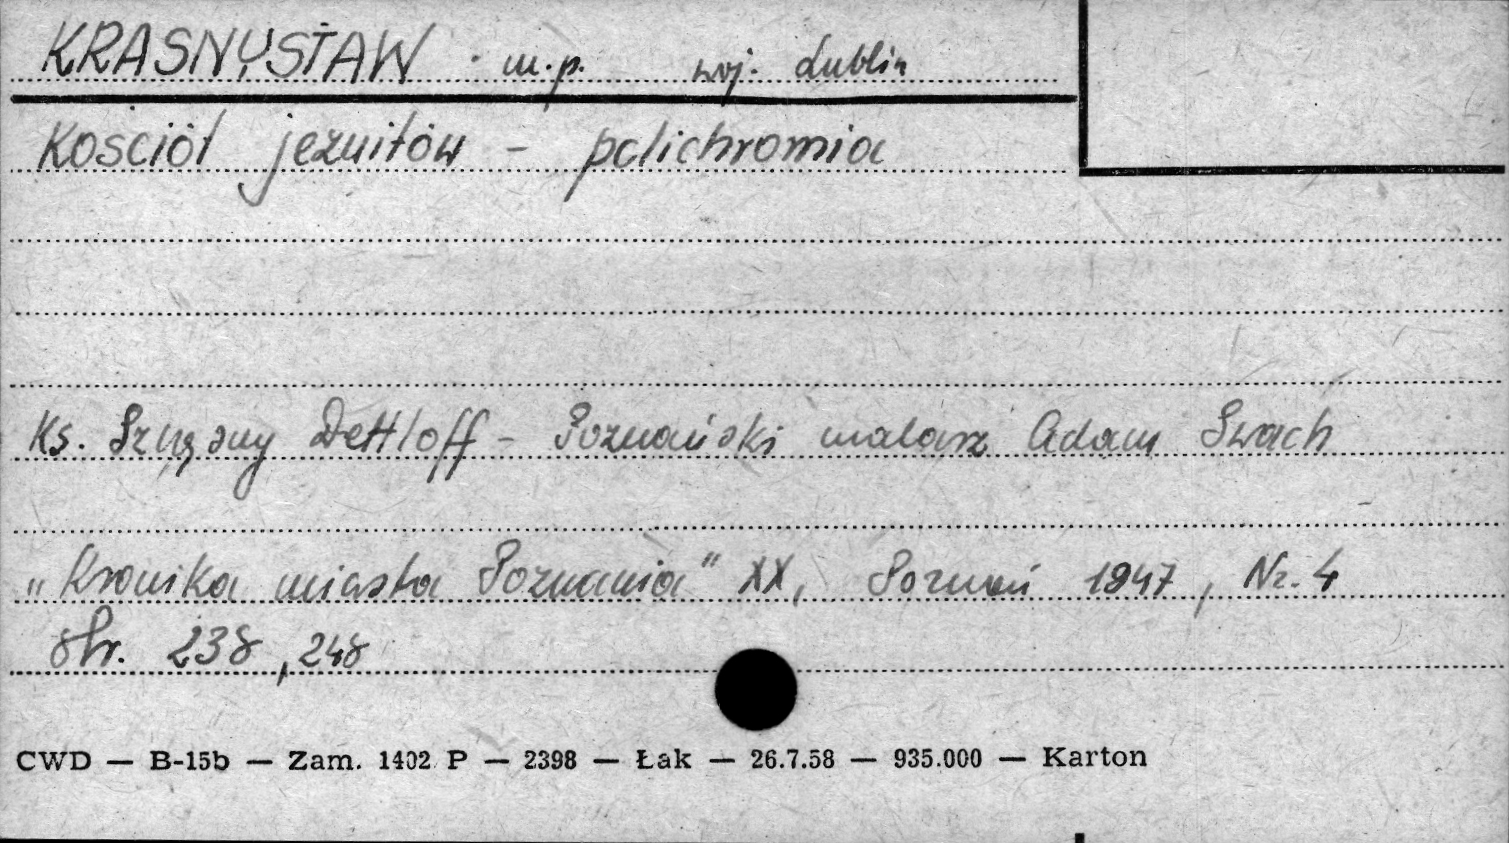 KRASNYSTAW · m.p. woj. Lublin
Kościół jezuitów - polichromia
Ks. Szczęsny Dettloff - Poznański malarz Adam Swach
„Kronika miasta Poznania" XX, Poznań 1947, Nr. 4
str. 238, 248
CWD — B-15b — Zam. 1402 P — 2398 — Łak — 26.7.58 — 935.000 — Karton